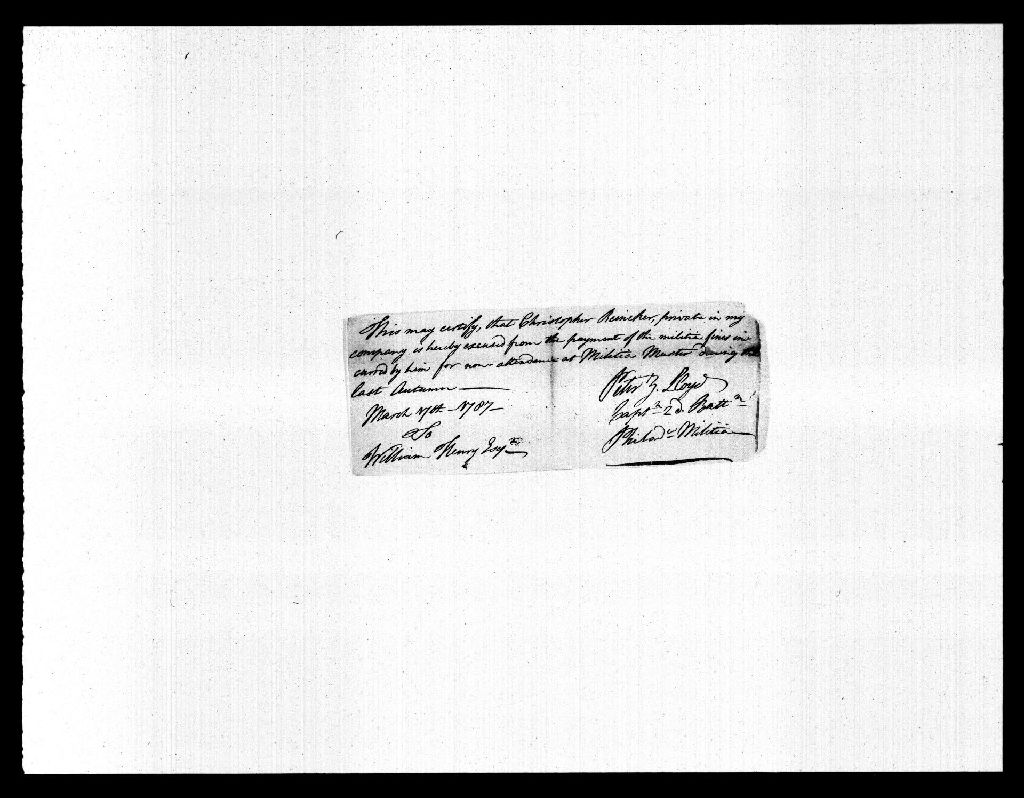 This may certify, that Christopher Reinicker, private in my
company is hereby excused from the payment of the militia fines in
curred by him for non attendance at Militia Muster during the
last Autumn
March 17th 1787
To
William Henry Esqr.
Peter Z. Lloyd
Captn. 2d. Battn.
Philada. Militia